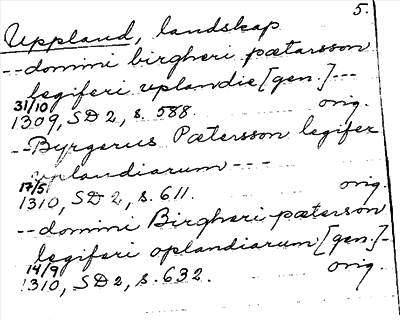 5.
Uppland, landskap
-- domini birgheri pætarsson
legiferi uplandie [gen.] ---
31/10 orig.
1309, SD 2, s. 588.
-- Byrgerus Pætersson legifer
uplandiarum ---
17/5 orig.
1310, SD 2, s. 611.
-- domini Birgheri pæterson
legiferi oplandiarum [gen.] -
14/9 orig.
1310, SD 2, s. 632.